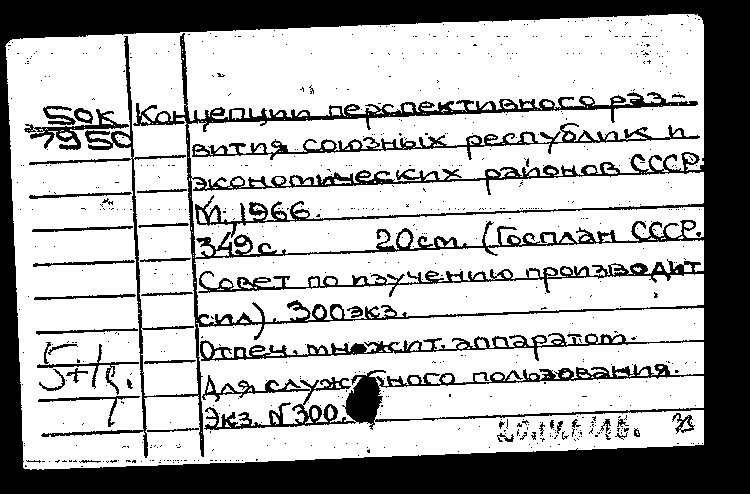 50К Концепции перспективного раз-
7950 вития союзных республик и
экономических районов СССР.
М., 1966.
349 с. 20 cm. (Госплан СССР.
Совет по изучению производит
сил). 300 экз.
Отпеч. множит. аппаратом.
Для служебного пользования.
Экз. N 300.